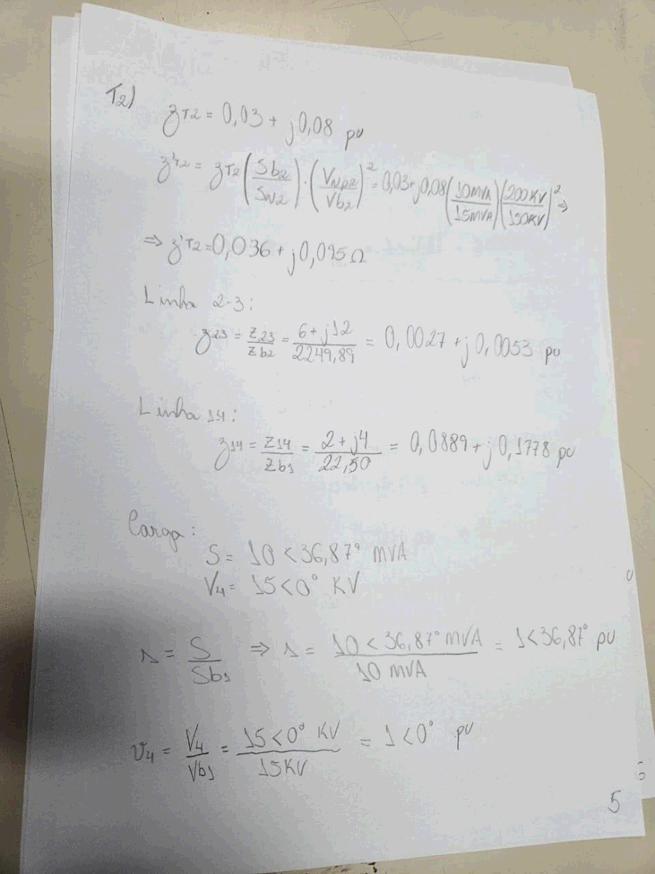 T2)
zT2 = 0,03 + j0,08 pu
z'T2 = zT2 (Sb2/SN2) · (VNp2/Vb2)² = 0,03+j0,08 (10MVA/15MVA) (200KV/150KV)² ⇒
⇒ z'T2 = 0,036 + j0,095 Ω
Linha 2-3:
z23 = Z23/Zb2 = 6 + j12/2249,89 = 0,0027 + j0,0053 pu
Linha 14:
z14 = Z14/Zb1 = 2 + j4/22,50 = 0,0889 + j0,1778 pu
Carga:
S = 10 < 36,87° MVA
V4 = 15 < 0° KV
s = S/Sb1 ⇒ s = 10 < 36,87° MVA/10 MVA = 1 < 36,87° pu
v4 = V4/Vb1 = 15 < 0° KV/15KV = 1 < 0° pu
5